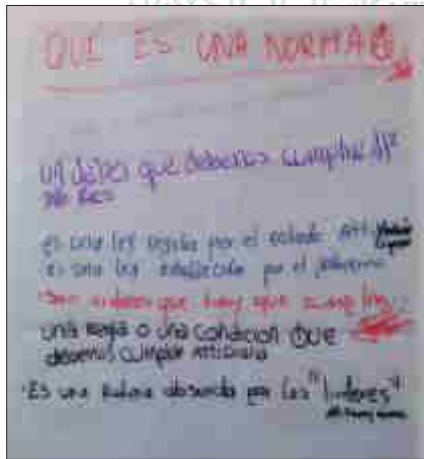 QUE ES UNA NORMA
un deber que debemos cumplir
es una ley regida por el estado
es una ley establecida por el gobierno
Son ordenes que hay que cumplir
una regla o una condicion que
debemos cumplir
Es una por los "lideres"